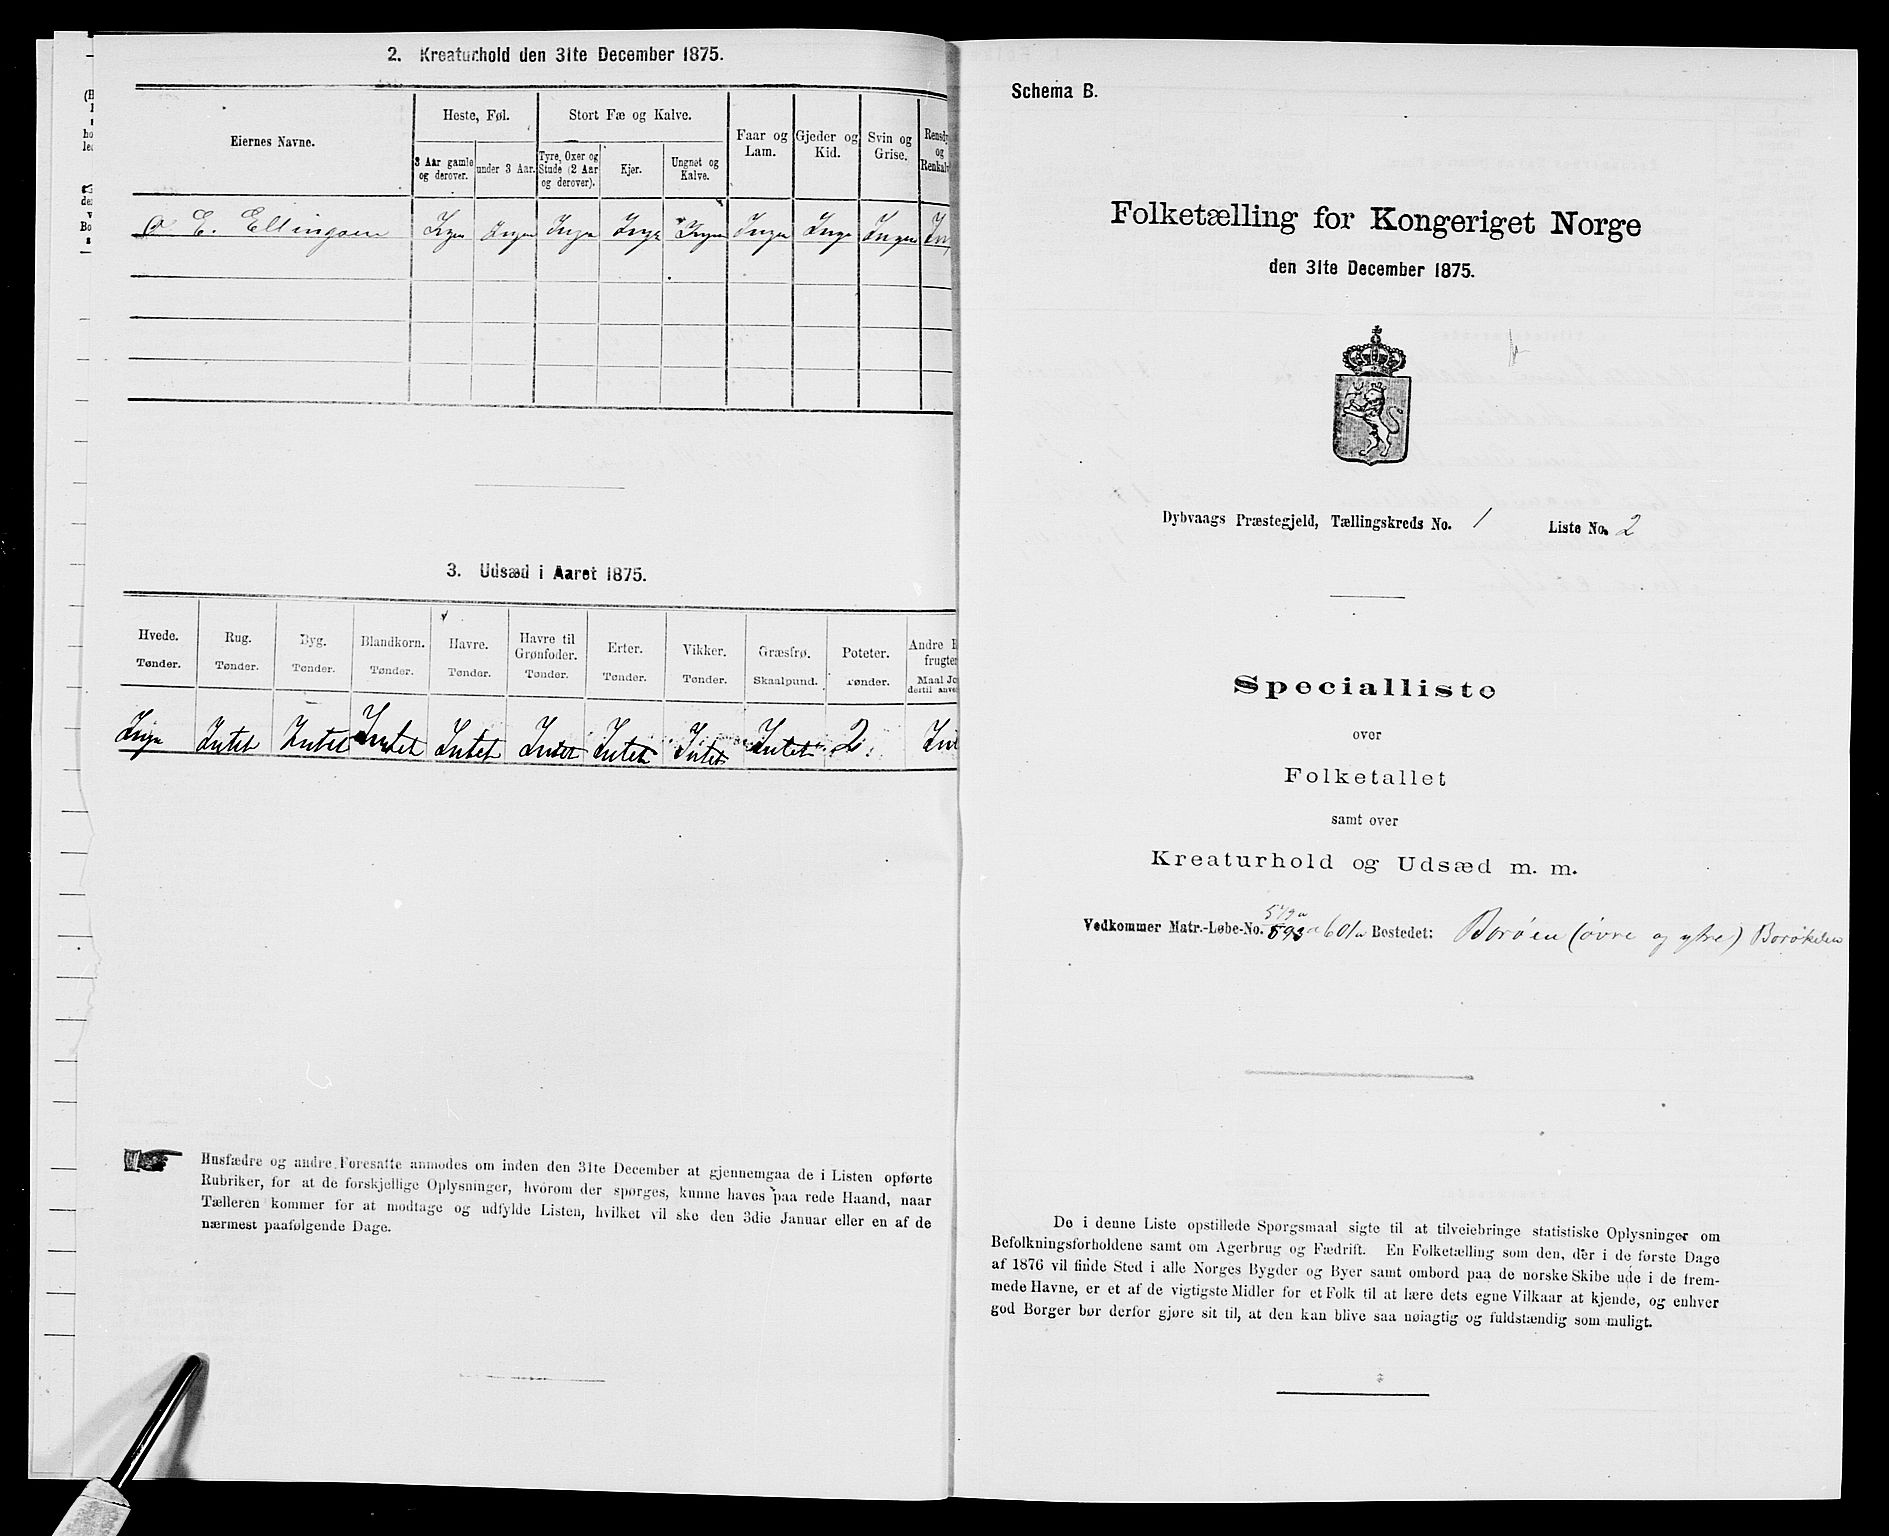 2. Kreaturhold den 31te December 1875.
Eiernes Navne.
Heste, Føl.
Stort Fæ og Kalve.
Faar og Lam.
Gjeder og Kid.
Svin og Grise.
Rensdy
og
Renkalv
3 Aar gamle og derover.
under 3 Aar.
Tyre, Oxer og Stude (2 Aar og derover).
Kjer.
Ungnet og Kalve.
E. Ellingsen Ingen Ingen Ingen Inge Ingen Ingen Inge Ingen In
3. Udsæd i Aaret 1875.
Hvede. Rug. Byg. Blandkorn. Havre. Havre til Grønfoder. Erter. Vikker. Græsfrø. Poteter. Andre
frugter
Tønder. Tønder. Tønder. Tønder. Tønder. Tønder. Tønder. Tønder. Skaalpund. Tønder. Maal Jo
dertil anve
Inge Intet Intet Intet Intet Intet Intet Intet Intet 2. Int
Husfædre og andre Foresatte anmodes om inden den 31te December at gjennemgaa de i Listen opførte
Rubriker, for at de forskjellige Oplysninger, hvorom der spørges, kunne haves paa rede Haand, naar
Tælleren kommer for at modtage og udfylde Listen, hvilket vil ske den 3die Januar eller en af de
nærmest paafølgende Dage.
Schema B.
Folketælling for Kongeriget Norge
den 31te December 1875.
Dybvaags Præstegjeld, Tællingskreds No. 1 Liste No. 2
Specialliste
over
Folketallet
samt over
Kreaturhold og Udsæd m. m.
Vedkommer Matr.-Løbe-No. 593a 601a Bostedet: Borøen (øvre og ytre) Borøkilen
De i denne Liste opstillede Spørgsmaal sigte til at tilveiebringe statistiske Oplysninger om
Befolkningsforholdene samt om Agerbrug og Fædrift. En Folketælling som den, der i de første Dage
af 1876 vil finde Sted i alle Norges Bygder og Byer samt ombord paa de norske Skibe ude i de frem-
mede Havne, er et af de vigtigste Midler for et Folk til at lære dets egne Vilkaar at kjende, og enhver
god Borger bør derfor gjøre sit til, at den kan blive saa nøiagtig og fuldstændig som muligt.